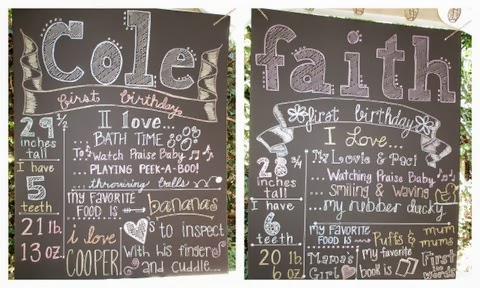 Cole
first birthday
29 1/2
inches
tall
I have
5
teeth
21 lb.
13 oz.
I love...
BATH TIME
...To Watch Praise Baby
...PLAYING PEEK-A-BOO!
...throwing balls
my FAVORITE
FOOD IS
bananas
i love
COOPER
's to inspect
with his finger
and cuddle...
faith
first birthday
28 3/4
inches
tall
I have
6
teeth
20 lb
6 oz.
I Love...
My Lovie & Paci
Watching Praise Baby
... smiling & waving
...my rubber ducky
my FAVORITE
FOOD IS
Puffs & mum
mums
Mama's
Girl
my favorite
book is
First
100
words